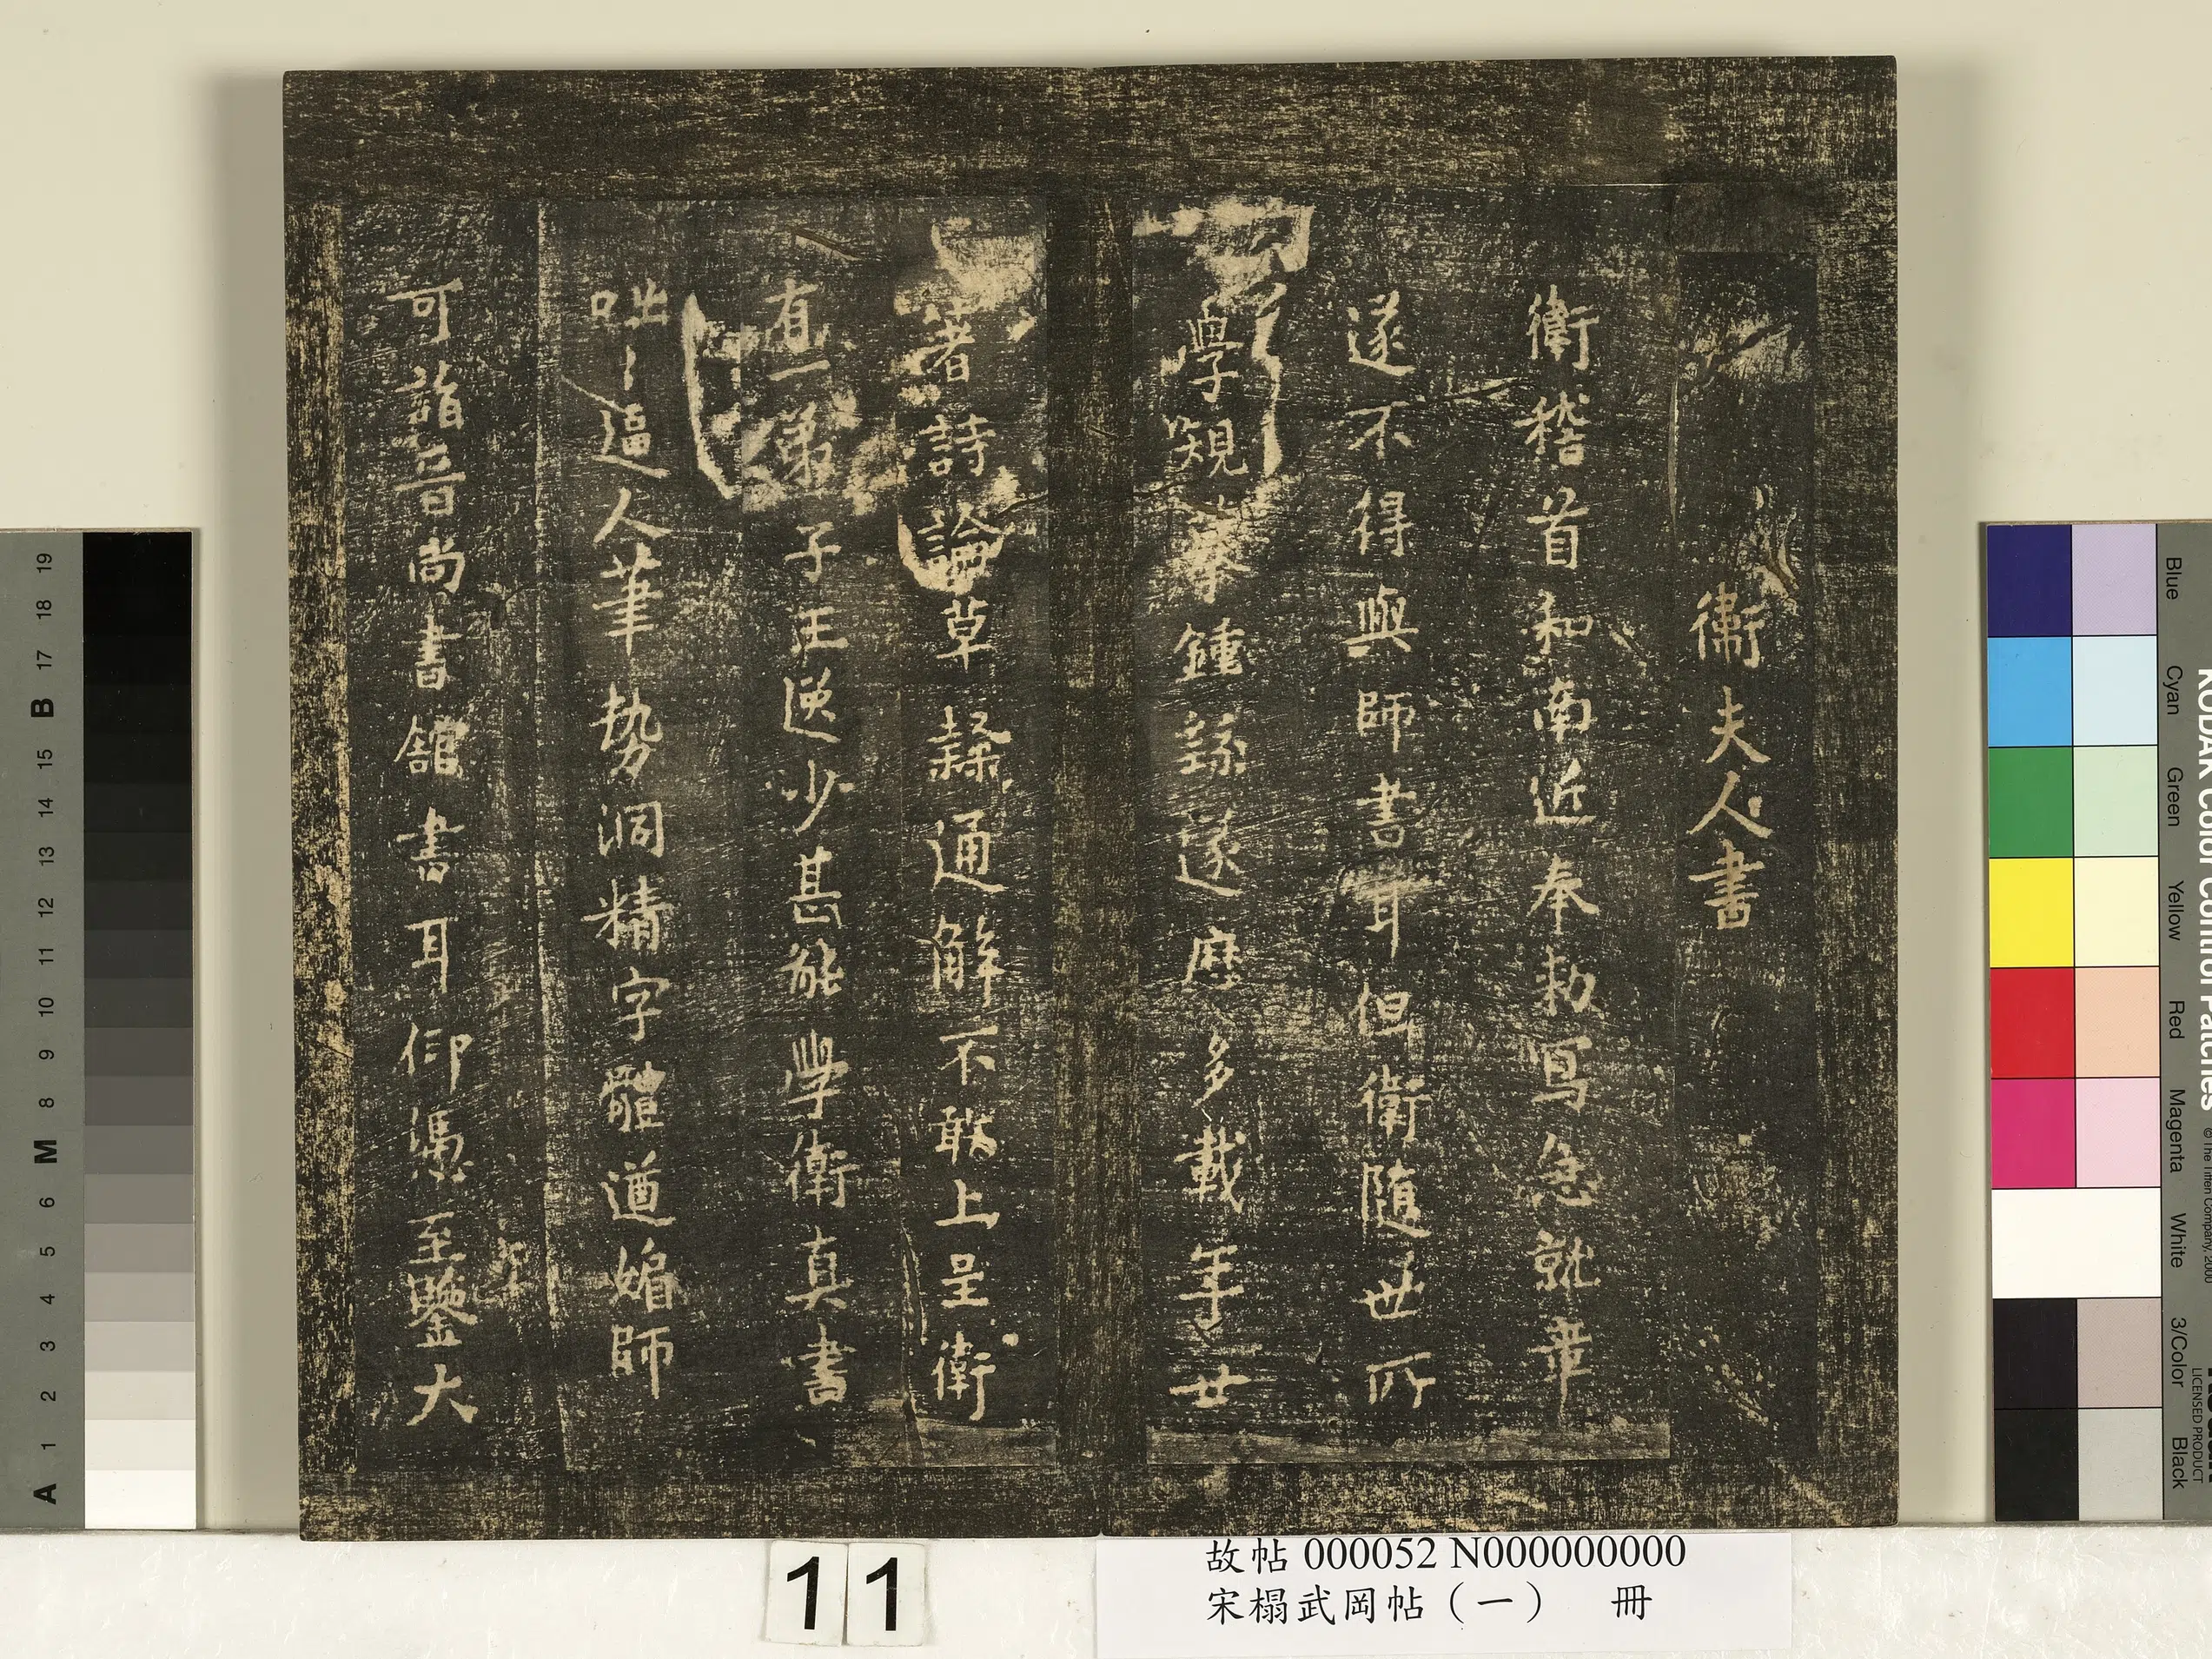 衛夫人書
衛稽首和南近奉勑寫急就章
遂不得與師書耳但衛隨世所
學規摹鍾繇遂歷多載年廿
著詩論草隸通解不敢上呈衛
有一弟子王逸少甚能學衛真書
咄〻逼人筆勢洞精字體遒媚師
可詣晉尚書館書耳仰憑至鑒大
故帖 000052 N000000000
宋榻武岡帖（一） 冊
11
KODAK Color Control Patches
© The Tiffen Company, 2000
LICENSED PRODUCT
Blue Cyan Green Yellow Red Magenta White 3/Color Black
A 1 2 3 4 5 6 M 8 9 10 11 12 13 14 15 B 17 18 19